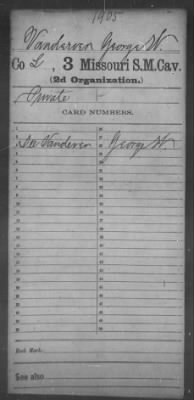 1405
Vanderver George W.
Co L, 3 Missouri S.M.Cav.
(2d Organization.)
Private
CARD NUMBERS.
See Vanderver George W
Book Mark:
See also